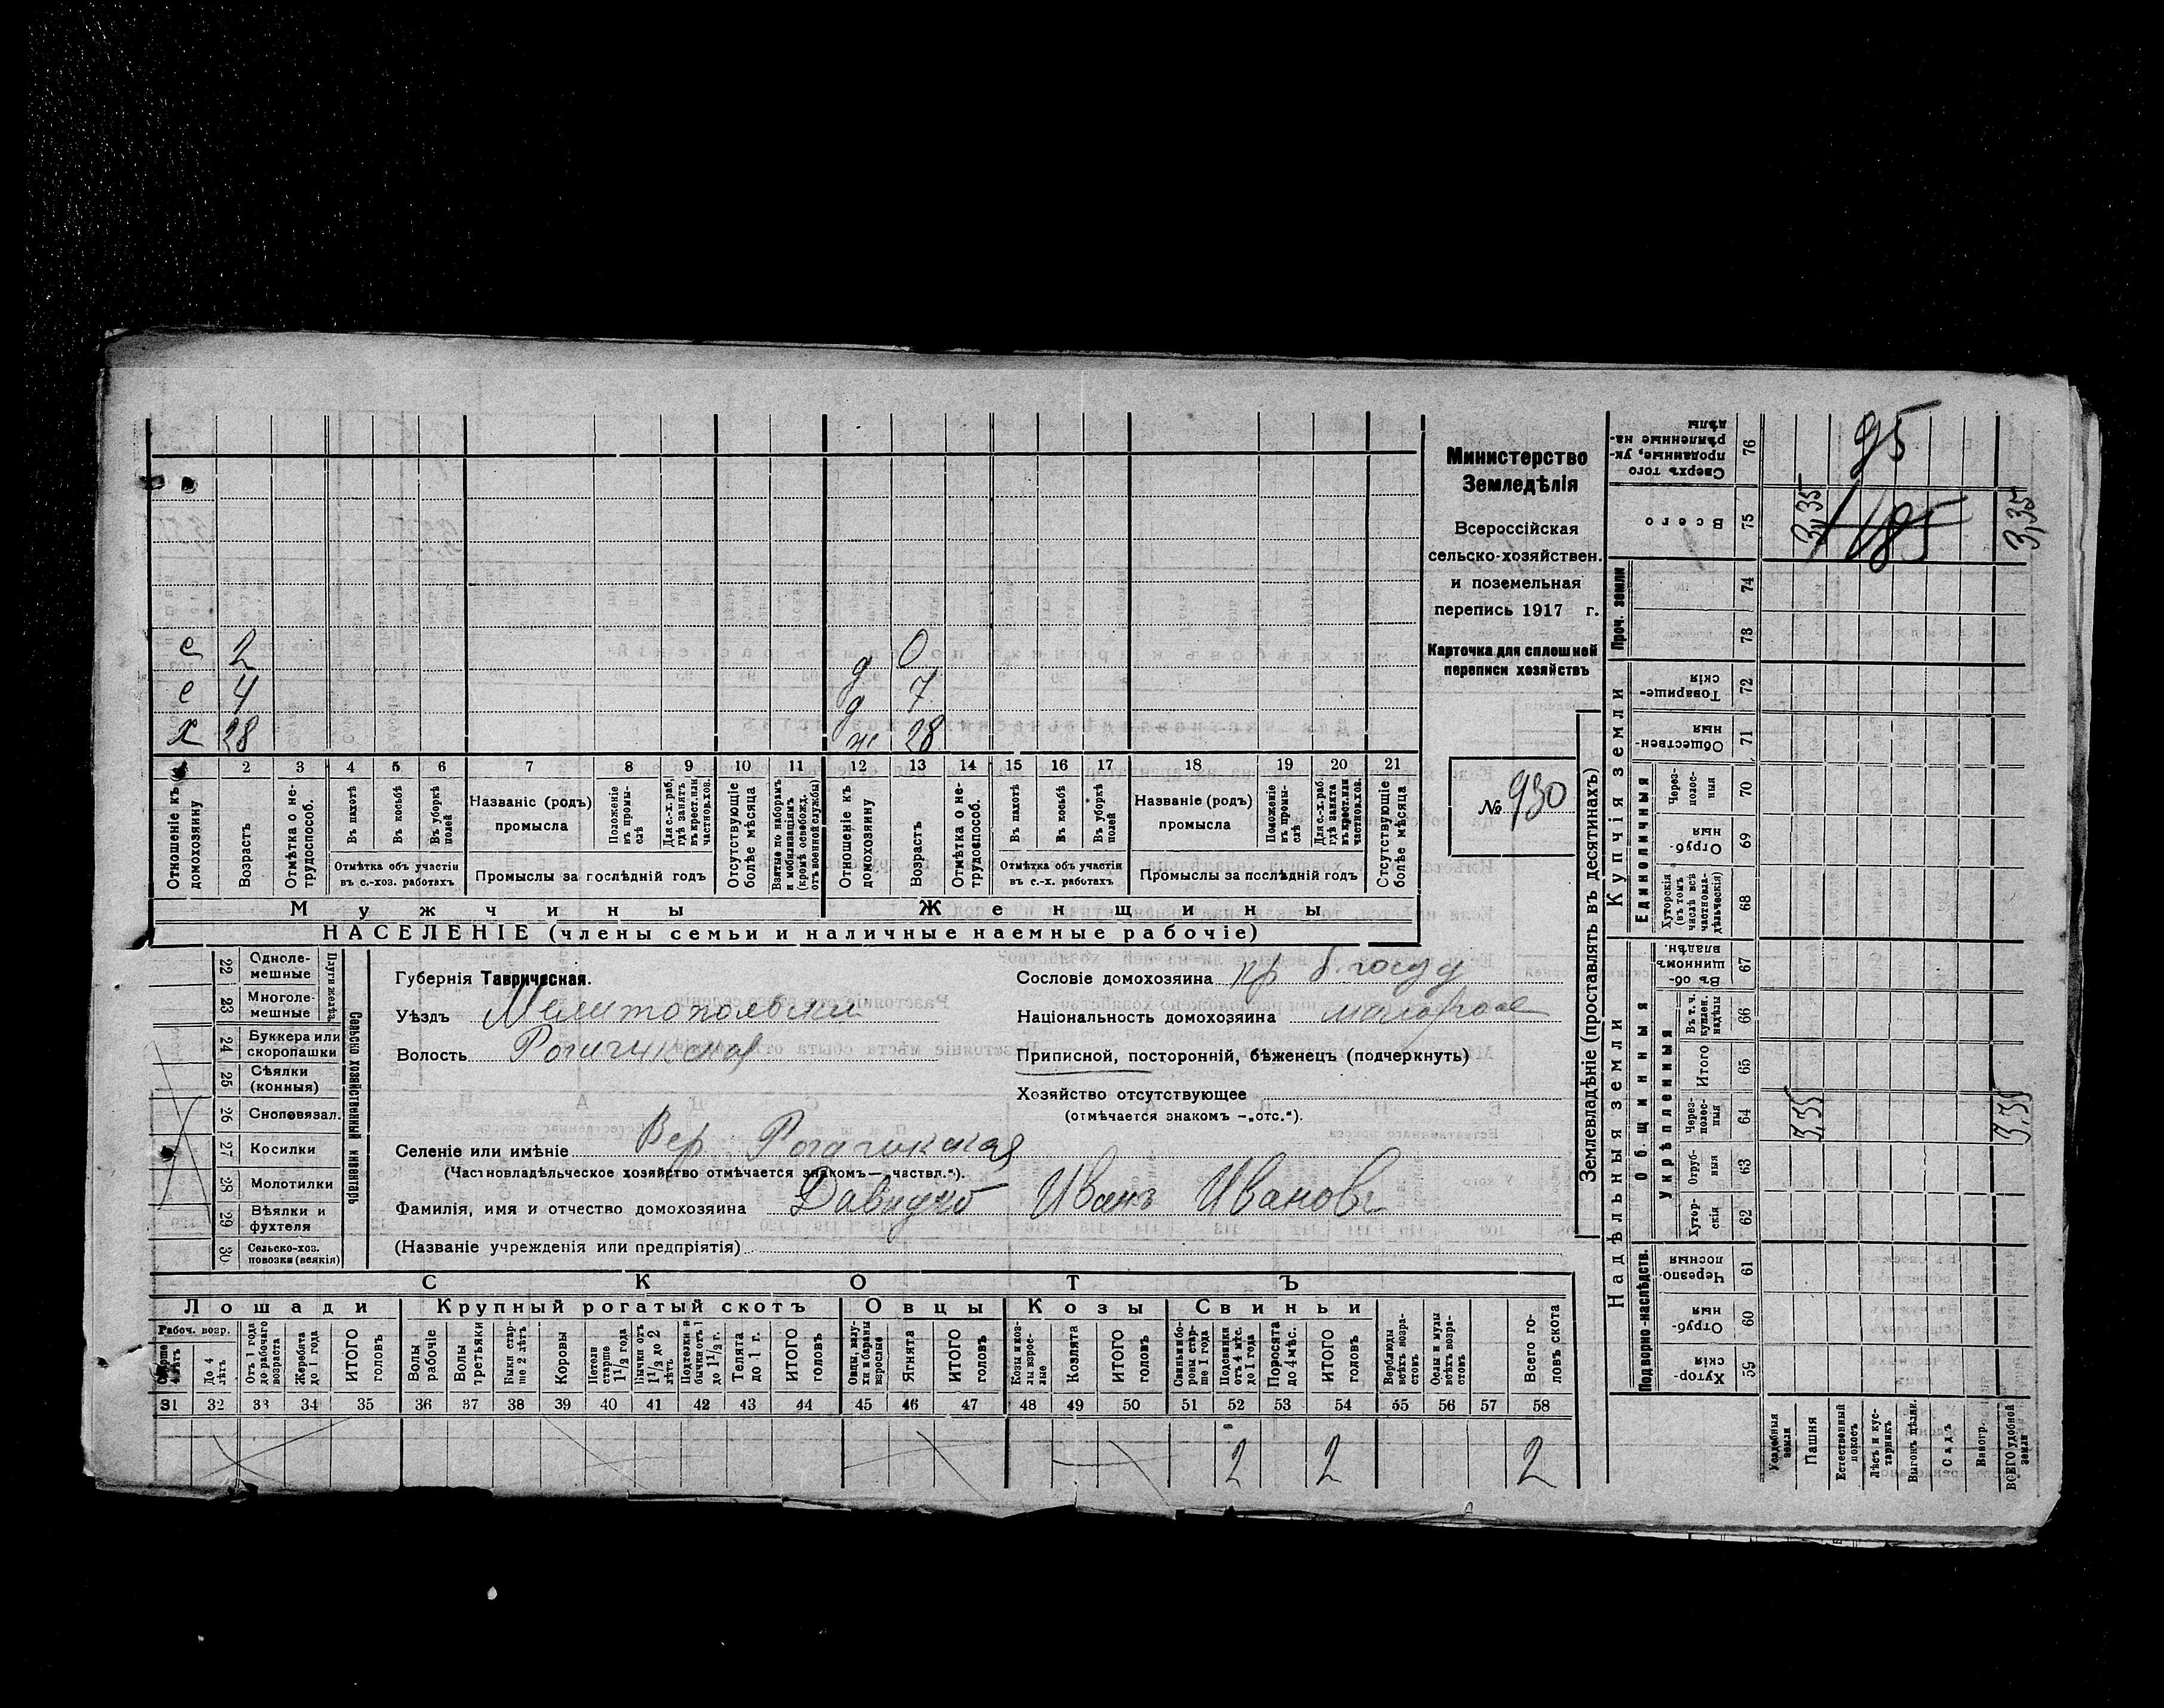 Министерство
Земледѣлія
Всероссійская
сельско-хозяйствен.
и поземельная
перепись 1917 г.
Карточка для сплошной
переписи хозяйствъ
№ 930
с 2
с 4
х 28
д 0
д 7
ж 28
1 2 3 4 5 6 7 8 9 10 11 12 13 14 15 16 17 18 19 20 21
Отношеніе къ домохозяину
Возрастъ
Отмѣтка о нетрудоспособ.
Въ пахотѣ
Въ косьбѣ
Въ уборкѣ полей
Отмѣтка объ участіи въ с.-хоз. работахъ
Названіе (родъ) промысла
Положеніе въ промыслѣ
Для с.-х. раб. гдѣ занятъ въ крест. или частнов. хоз.
Промыслы за послѣдній годъ
Отсутствующіе болѣе мѣсяца
Взятые по наборамъ и мобилизаціямъ (кромѣ освобожд. отъ военной службы)
Отношеніе къ домохозяину
Возрастъ
Отмѣтка о нетрудоспособ.
Въ пахотѣ
Въ косьбѣ
Въ уборкѣ полей
Отмѣтка объ участіи въ с.-х. работахъ
Названіе (родъ) промысла
Положеніе въ промыслѣ
Для с.-х. раб. гдѣ занята въ крест. или частнов. хоз.
Промыслы за послѣдній годъ
Отсутствующіе болѣе мѣсяца
Мужчины
Женщины
НАСЕЛЕНІЕ (члены семьи и наличные наемные рабочіе)
22 Однолемешные
23 Многолемешные
Плуги желѣз.
24 Буккера или скоропашки
25 Сѣялки (конныя)
26 Сноповязал.
27 Косилки
28 Молотилки
29 Вѣялки и фухтеля
30 Сельско-хоз. повозки (всякія)
Сельско хозяйственный инвентарь
Губернія Таврическая.
Уѣздъ Мелитопольскій
Волость Рогачикская
Селеніе или имѣніе Вер. Рогачикская
(Частновладѣльческое хозяйство отмѣчается знакомъ—„частвл.“).
Фамилія, имя и отчество домохозяина Давидко Иванъ Иванов
(Названіе учрежденія или предпріятія)
Сословіе домохозяина кр б. госуд
Національность домохозяина малоросс
Приписной, посторонній, бѣженецъ (подчеркнуть)
Хозяйство отсутствующее
(отмѣчается знакомъ —„отс.“).
СКОТЪ
Лошади
Крупный рогатый скотъ
Овцы
Козы
Свиньи
Рабоч. возр.
Старше 4 лѣтъ
До 4 лѣтъ
Отъ 1 года до рабочаго возраста
Жеребята до 1 года
ИТОГО головъ
Волы рабочіе
Волы третьяки
Быки старше 2 лѣтъ
Коровы
Нетели старше 1 1/2 года
Бычки отъ 1 1/2 до 2 лѣтъ
Подтелки и бычки отъ 1 до 1 1/2 г.
Телята до 1 г.
ИТОГО головъ
Овцы, валухи и бараны взрослые
Ягнята
ИТОГО головъ
Козы и козлы взрослые
Козлята
ИТОГО головъ
Свиньи боровы старше 1 года
Подсвинки отъ 4 мѣс. до 1 года
Поросята до 4 мѣс.
ИТОГО головъ
Верблюды всѣхъ возрастовъ
Ослы и мулы всѣхъ возрастовъ
Всего головъ скота
31 32 33 34 35 36 37 38 39 40 41 42 43 44 45 46 47 48 49 50 51 52 53 54 55 56 57 58
2 2 2
Землевладѣніе (проставлять въ десятинахъ)
Надѣльныя земли
Купчія земли
Проч. земли
Сверхъ того проданные, укрѣпленные надѣлы
76
95
Всего
75
3,35
185
3,35
74
73
Товарищескія
72
Общественныя
71
Единоличныя
Черезполосныя
70
Отрубныя
69
Хуторскія (въ томъ числѣ всѣ частновладѣльческія)
68
Въ общинномъ владѣн.
67
Общинныя
Укрѣпленныя
Въ т. ч. куплен. надѣлы
66
Итого
65
Черезполосныя
64
3,35
3,35
Отрубныя
63
Хуторскія
62
Подворно-наслѣдств.
Черезполосныя
61
Отрубныя
60
Хуторскія
59
Усадебныя земли
Пашня
Естественный покосъ
Лѣсъ и кустарникъ
Выгонъ цѣлик.
Садъ
Виногр.
ВСЕГО удобной земли